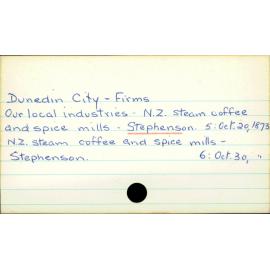 Dunedin City - Firms
Our local industries - N.Z. steam coffee
and spice mills - Stephenson. 5: Oct. 20, 1873
N.Z. steam coffee and spice mills -
Stephenson. 6: Oct. 30, "